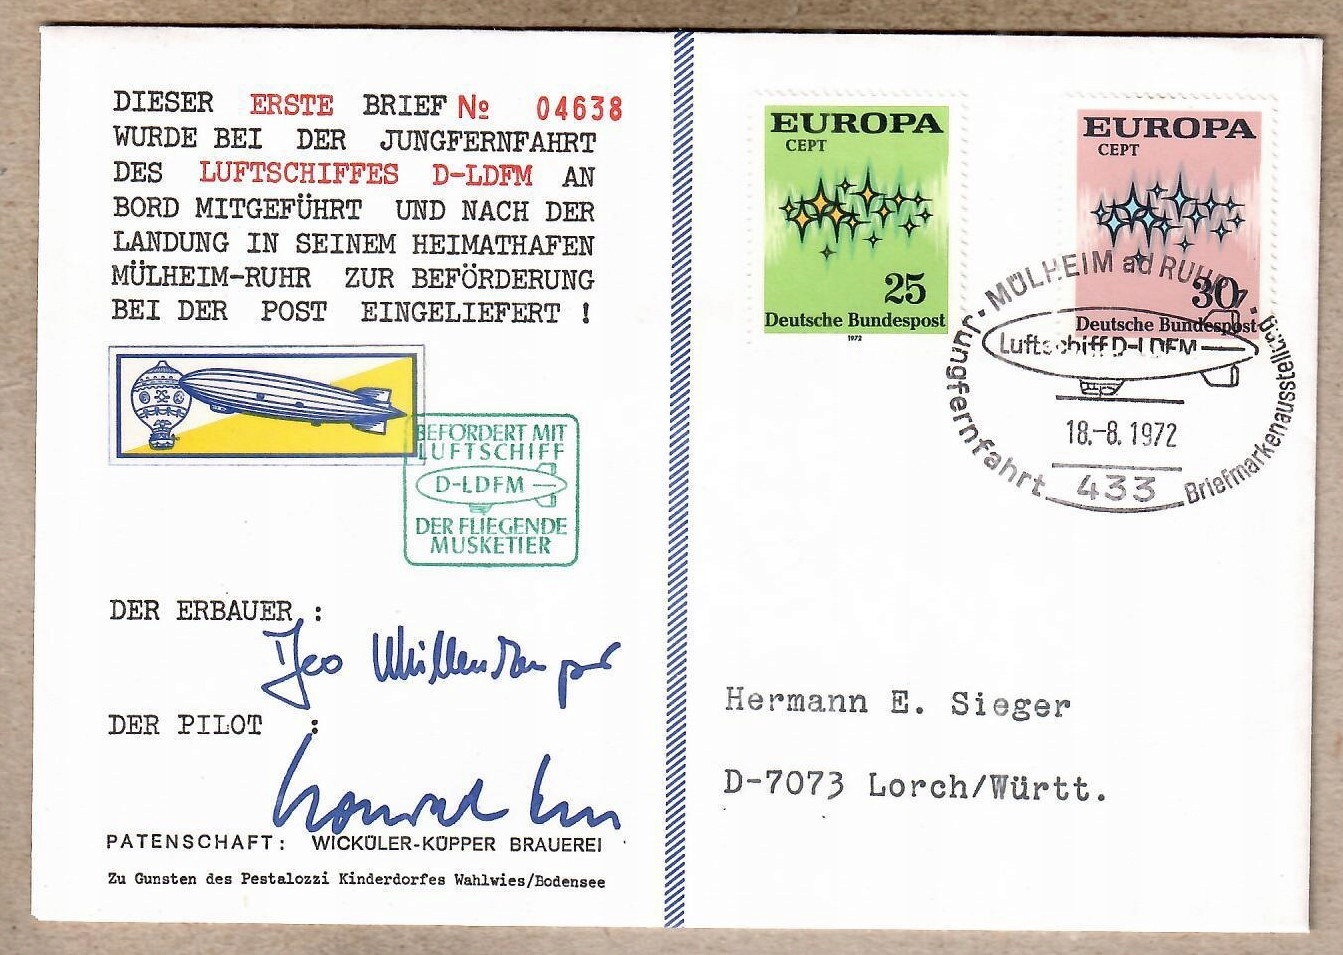 DIESER ERSTE BRIEF № 04638
WURDE BEI DER JUNGFERNFAHRT
DES LUFTSCHIFFES D-LDFM AN
BORD MITGEFÜHRT UND NACH DER
LANDUNG IN SEINEM HEIMATHAFEN
MÜLHEIM-RUHR ZUR BEFÖRDERUNG
BEI DER POST EINGELIEFERT !
BEFÖRDERT MIT
LUFTSCHIFF
D-LDFM
DER FLIEGENDE
MUSKETIER
DER ERBAUER :
DER PILOT :
PATENSCHAFT: WICKÜLER-KÜPPER BRAUEREI
Zu Gunsten des Pestalozzi Kinderdorfes Wahlwies/Bodensee
EUROPA
CEPT
25
Deutsche Bundespost
1972
EUROPA
CEPT
30
Deutsche Bundespost
MÜLHEIM ad RUHR
Luftschiff D-LDFM
18.-8.1972
433
Jungfernfahrt
Briefmarkenausstellung
Hermann E. Sieger
D-7073 Lorch/Württ.